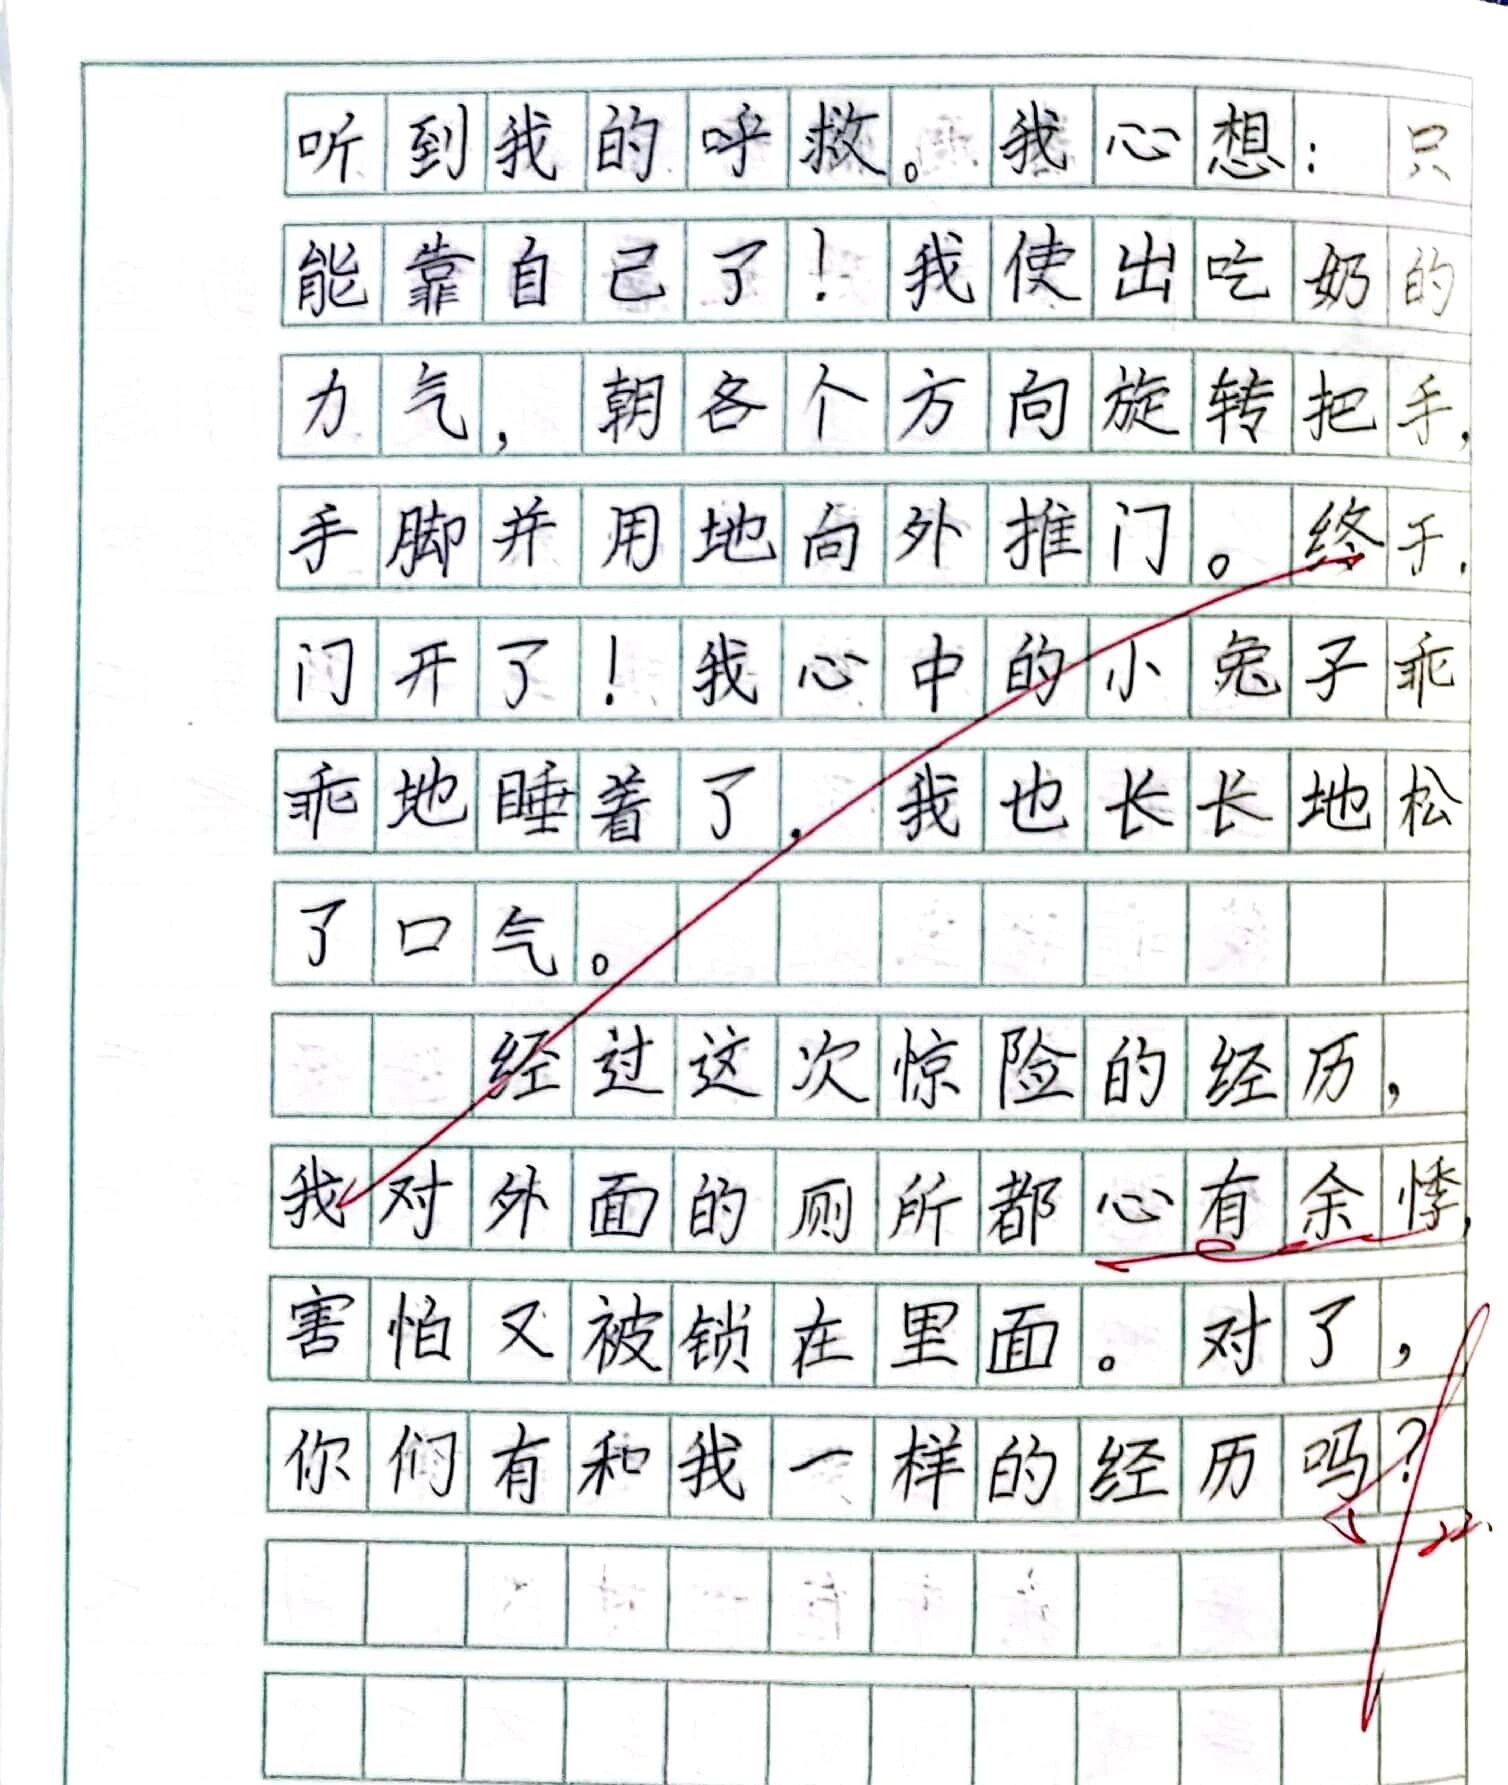 听到我的呼救。我心想：只
能靠自己了！我使出吃奶的
力气，朝各个方向旋转把手，
手脚并用地向外推门。终于，
门开了！我心中的小兔子乖
乖地睡着了，我也长长地松
了口气。
经过这次惊险的经历，
我对外面的厕所都心有余悸，
害怕又被锁在里面。对了，
你们有和我一样的经历吗？